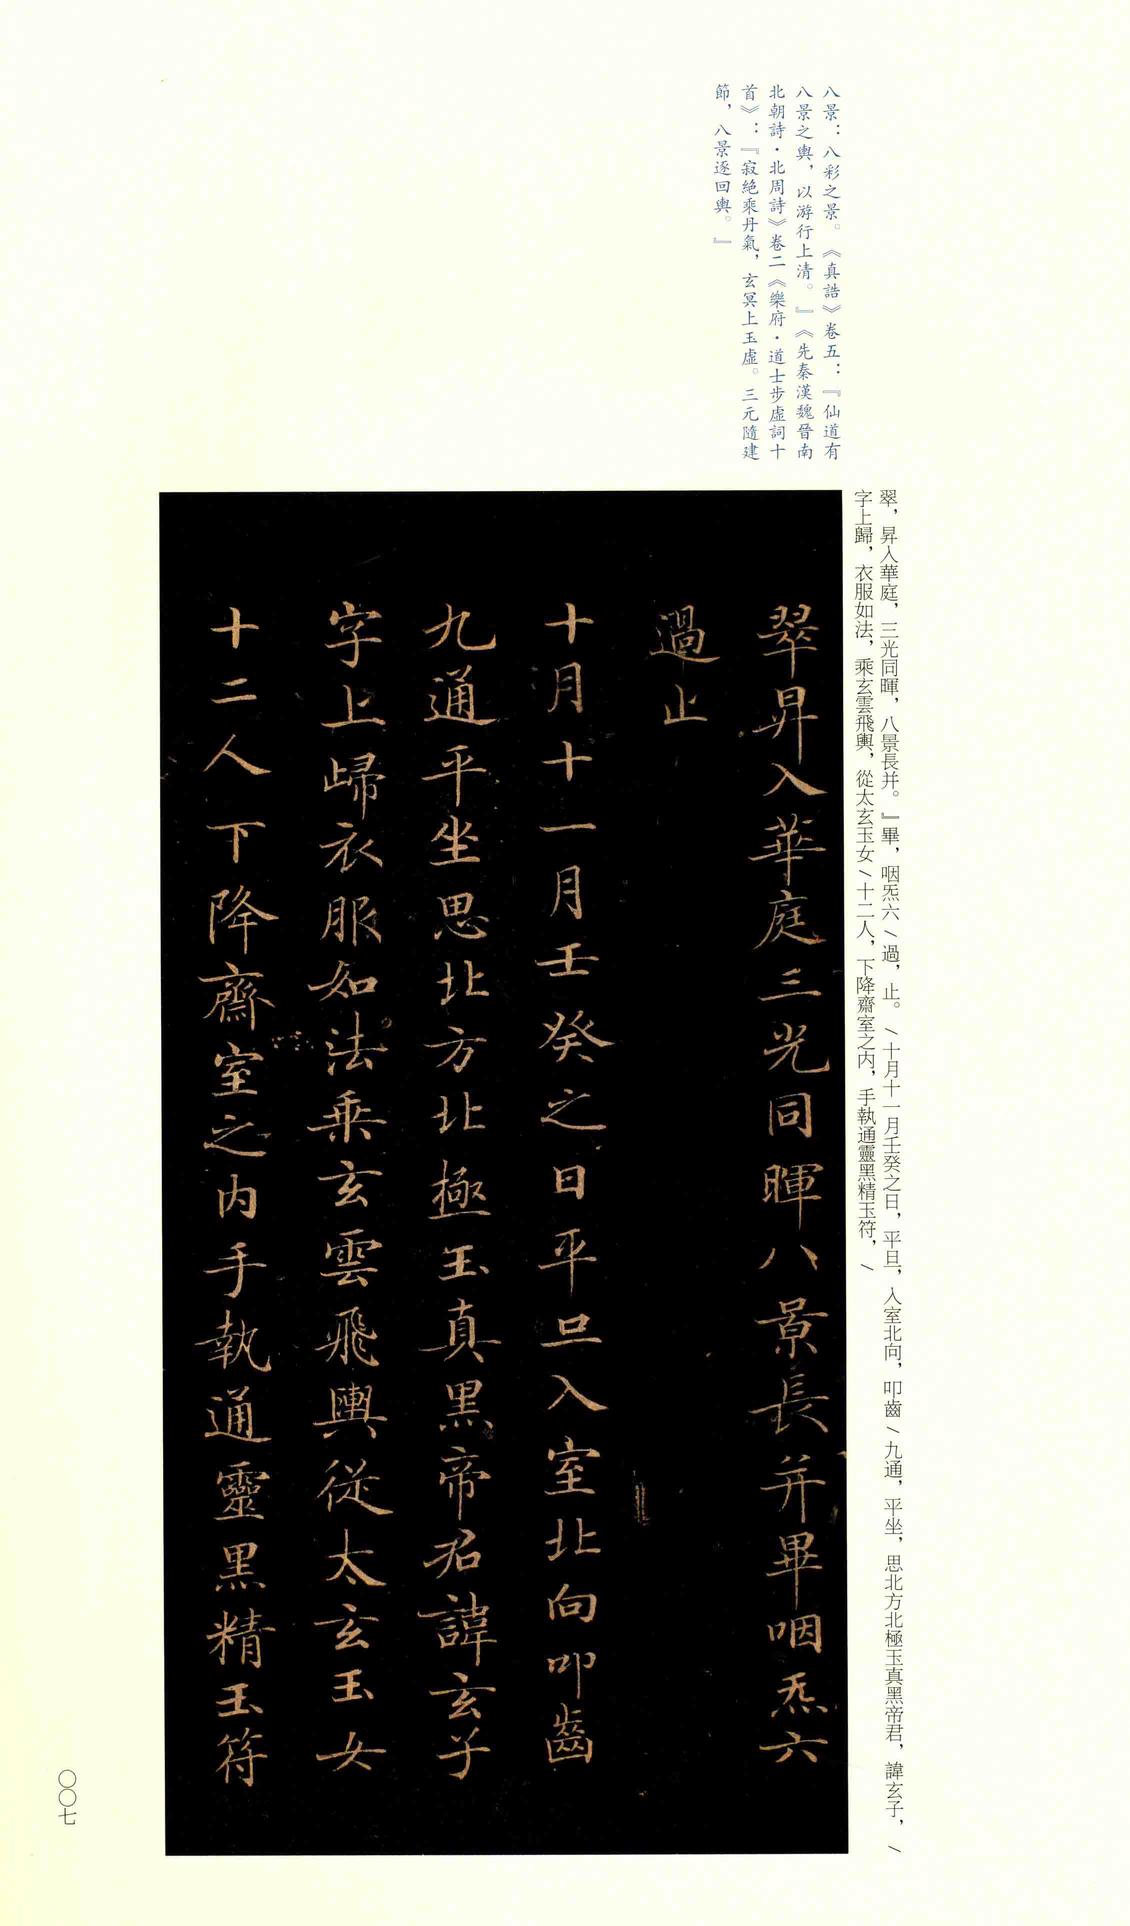 八景：八彩之景。《真誥》卷五：『仙道有
八景之輿，以游行上清。』《先秦漢魏晉南
北朝詩·北周詩》卷二《樂府·道士步虛詞十
首》：『寂絕乘丹氣，玄冥上玉虛。三元隨建
節，八景逐回輿。』
翠，昇入華庭，三光同暉，八景長并。』畢，咽炁六\過，止。\十月十一月壬癸之日，平旦，入室北向，叩齒\九通，平坐，思北方北極玉真黑帝君，諱玄子，\
字上歸，衣服如法，乘玄雲飛輿，從太玄玉女\十二人，下降齋室之内，手執通靈黑精玉符，\
翠昇入華庭三光同暉八景長并畢咽炁六
過止
十月十一月壬癸之日平旦入室北向叩齒
九通平坐思北方北極玉真黑帝君諱玄子
字上歸衣服如法乘玄雲飛輿從太玄玉女
十二人下降齋室之内手執通靈黑精玉符
〇〇七